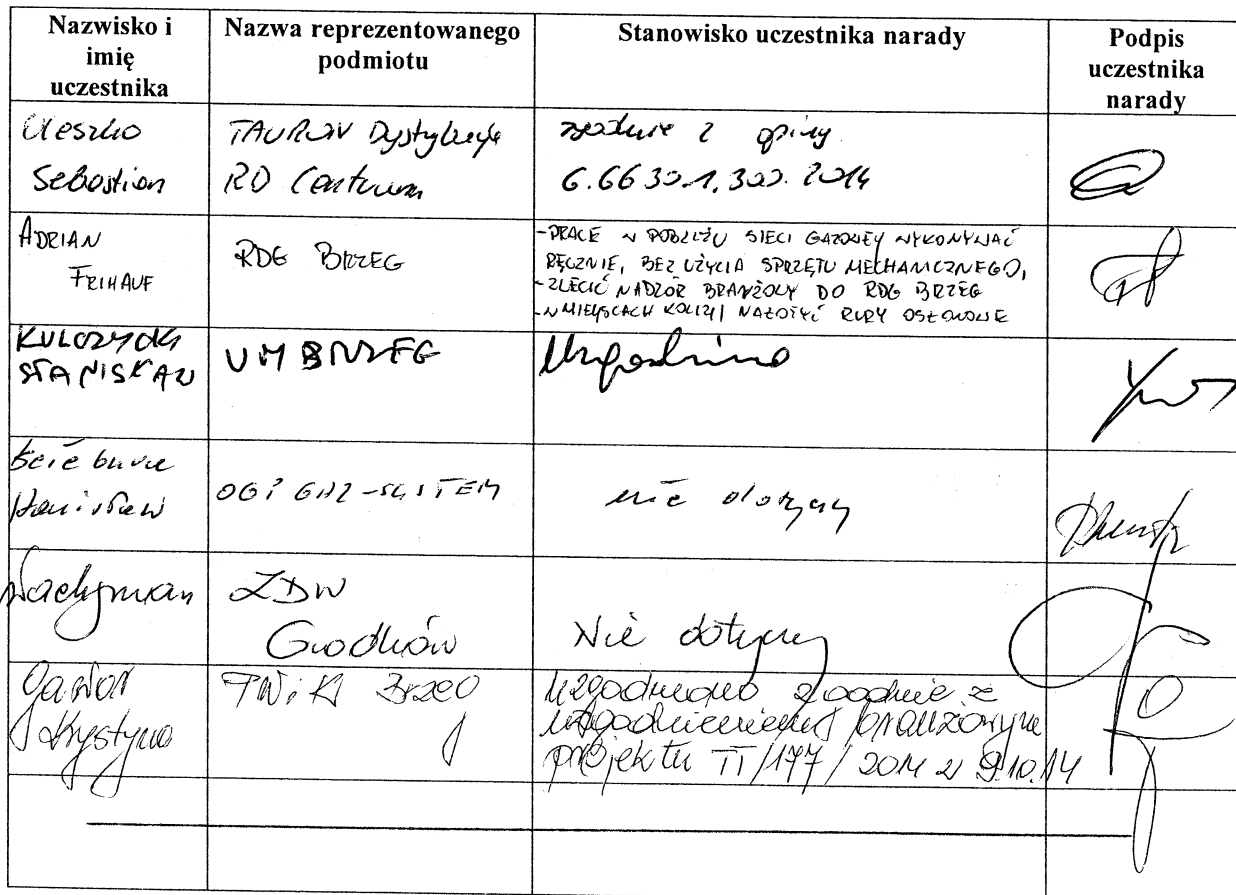 Nazwisko i
imię
uczestnika
Nazwa reprezentowanego
podmiotu
Stanowisko uczestnika narady
Podpis
uczestnika
narady
Sebastian
TAURON Dystrybucja
RD Centrum
zgodnie z opinią
ADRIAN
FRIHAUF
RDG BRZEG
-PRACE W POBLIŻU SIECI GAZOWEJ WYKONYWAĆ
RĘCZNIE, BEZ UŻYCIA SPRZĘTU MECHANICZNEGO,
-ZLECIĆ NADZÓR BRANŻOWY DO RDG BRZEG
-W MIEJSCACH KOLIZJI NAŁOŻYĆ RURY OSŁONOWE
KULCZYCKI
STANISŁAW
UM BRZEG
Uzgodniono
Stanisław
OGP GAZ-SYSTEM
nie dotyczy
ZDW
Grodków
Nie dotyczy
Gawor
Krystyna
PWiK Brzeg
Uzgodniono zgodnie z
uzgodnieniem branżowym
projektu TT/177/2014 z 9.10.14